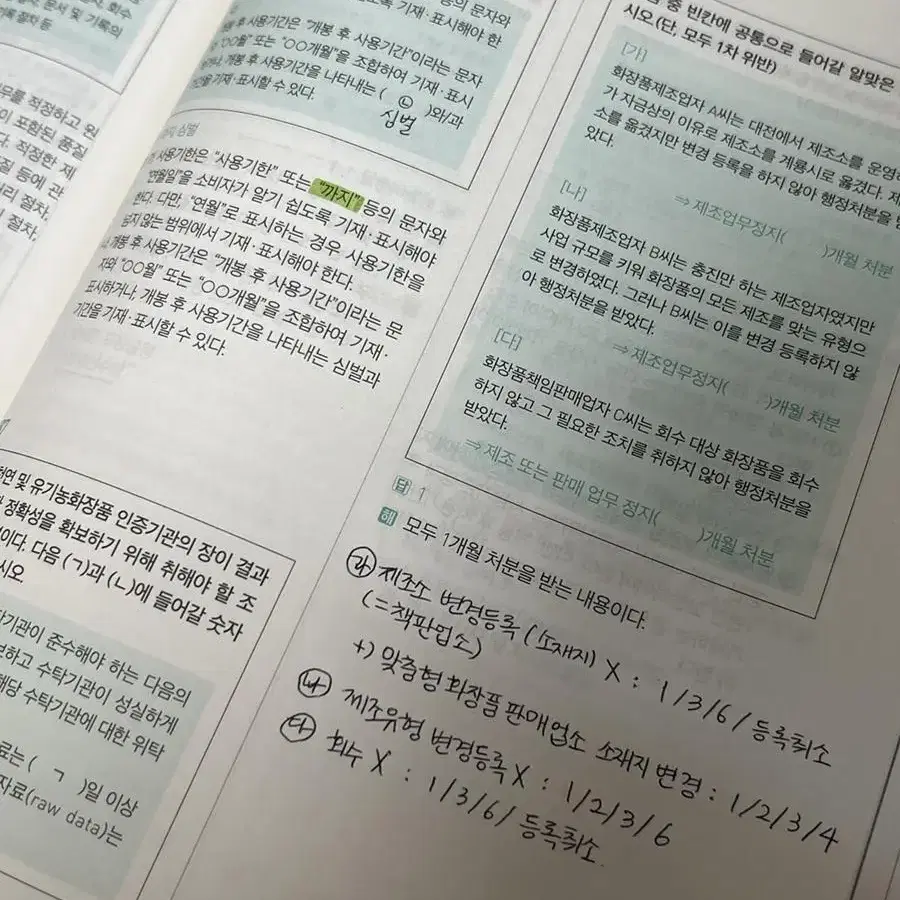 회수
문서 및 기록의
절차 등
등의 문자와
기재·표시해야 한
개봉 후 사용기간은 "개봉 후 사용기간"이라는 문자
"○○월" 또는 "○○개월"을 조합하여 기재·표시
개봉 후 사용기간을 나타내는 ( ㉢ )와/과
기간을 기재·표시할 수 있다.
심벌
심벌
사용기한은 "사용기한" 또는 "까지" 등의 문자와
"연월일"을 소비자가 알기 쉽도록 기재·표시해야
한다. 다만, "연월"로 표시하는 경우 사용기한을
넘지 않는 범위에서 기재·표시해야 한다.
개봉 후 사용기간은 "개봉 후 사용기간"이라는 문
자와 "○○월" 또는 "○○개월"을 조합하여 기재·
표시하거나, 개봉 후 사용기간을 나타내는 심벌과
기간을 기재·표시할 수 있다.
적정하고
포함된 품질
다. 적정한 제
질 등에 관
리 절차,
절차,
및 유기농화장품 인증기관의 장이 결과
정확성을 확보하기 위해 취해야 할 조
이다. 다음 (ㄱ)과 (ㄴ)에 들어갈 숫자
시오
기관이 준수해야 하는 다음의
하고 수탁기관이 성실하게
해당 수탁기관에 대한 위탁
료는 ( ㄱ )일 이상
자료(raw data)는
중 빈칸에 공통으로 들어갈 알맞은
시오 (단, 모두 1차 위반)
[가]
화장품제조업자 A씨는 대전에서 제조소를 운영하
가 자금상의 이유로 제조소를 계룡시로 옮겼다. 제
소를 옮겼지만 변경 등록을 하지 않아 행정처분을 받
았다.
⇒ 제조업무정지( )개월 처분
[나]
화장품제조업자 B씨는 충진만 하는 제조업자였지만
사업 규모를 키워 화장품의 모든 제조를 맞는 유형으
로 변경하였다. 그러나 B씨는 이를 변경 등록하지 않
아 행정처분을 받았다.
⇒ 제조업무정지( )개월 처분
[다]
화장품책임판매업자 C씨는 회수 대상 화장품을 회수
하지 않고 그 필요한 조치를 취하지 않아 행정처분을
받았다.
⇒ 제조 또는 판매 업무 정지( )개월 처분
답 1
해 모두 1개월 처분을 받는 내용이다.
㉮ 제조소 변경등록 (소재지) X : 1/3/6/등록취소
(=책판업소)
+) 맞춤형 화장품 판매업소 소재지 변경 : 1/2/3/4
㉯ 제조유형 변경등록 X : 1/2/3/6
㉰ 회수 X : 1/3/6/등록취소.